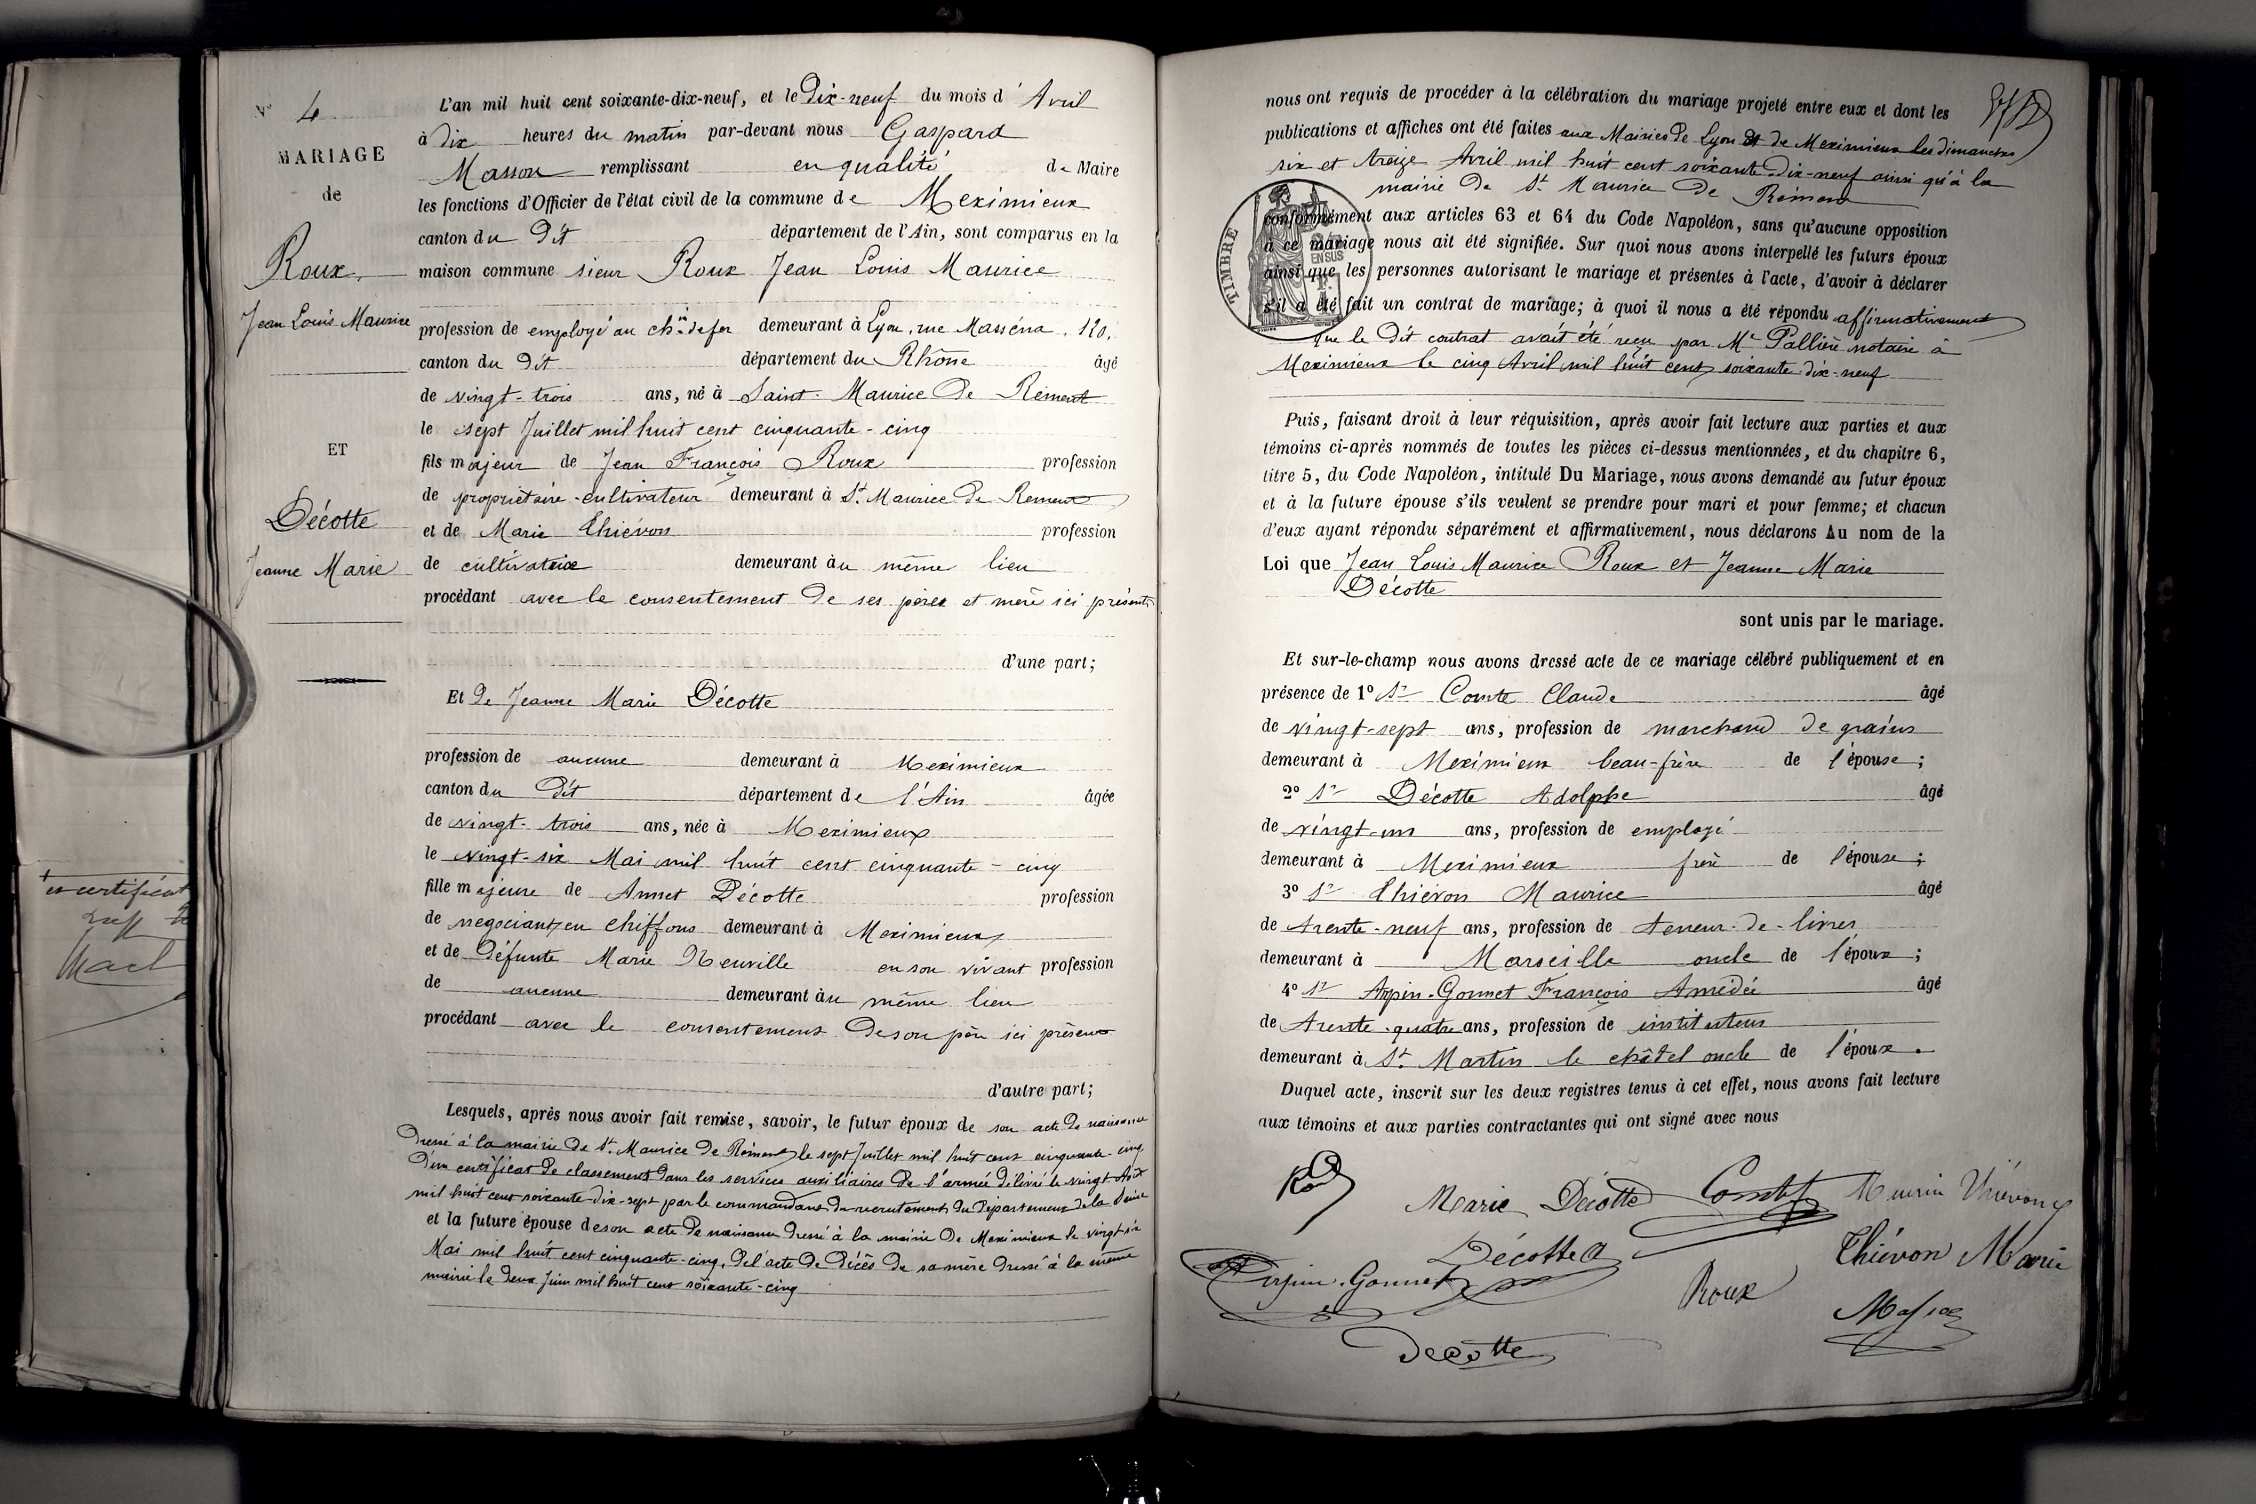 N° 4
MARIAGE
de
Roux
Jean Louis Maurice
ET
Décotte
Jeanne Marie
L'an mil huit cent soixante-dix-neuf, et le Dix-neuf du mois d'Avril
à dix heures du matin par-devant nous Gaspard
Masson remplissant en qualité de Maire
les fonctions d'Officier de l'état civil de la commune de Meximieux
canton du Dit département de l'Ain, sont comparus en la
maison commune sieur Roux Jean Louis Maurice
profession de employé au ch. de fer demeurant à Lyon, rue Masséna, 120,
canton du Dit département du Rhône âgé
de vingt-trois ans, né à Saint-Maurice de Rémens
le sept Juillet mil huit cent cinquante-cinq
fils majeur de Jean François Roux profession
de propriétaire-cultivateur demeurant à St Maurice de Remens
et de Marie Thiévon profession
de cultivatrice demeurant au même lieu
procédant avec le consentement de ses père et mère ici présents
d'une part;
Et de Jeanne Marie Décotte
profession de aucune demeurant à Meximieux
canton du Dit département de l'Ain âgée
de vingt-trois ans, née à Meximieux
le vingt-six Mai mil huit cent cinquante-cinq
fille majeure de Annet Décotte profession
de negociant en chiffons demeurant à Meximieux
et de Défunte Marie Neuville en son vivant profession
de aucune demeurant au même lieu
procédant avec le consentement de son père ici présent
d'autre part;
Lesquels, après nous avoir fait remise, savoir, le futur époux de son acte de naissance
dressé à la mairie de St Maurice de Rémens le sept Juillet mil huit cent cinquante-cinq
d'un certificat de classement dans les services auxiliaires de l'armée délivré le vingt Août
mil huit cent soixante-dix-sept par le commandant du recrutement du Département de la
et la future épouse de son acte de naissance dressé à la mairie de Meximieux le vingt-six
Mai mil huit cent cinquante-cinq, de l'acte de décès de sa mère dressé à la même
mairie le deux Juin mil huit cent soixante-cinq
nous ont requis de procéder à la célébration du mariage projeté entre eux et dont les
publications et affiches ont été faites aux Mairies de Lyon et de Meximieux les dimanches
six et treize Avril mil huit cent soixante-dix-neuf ainsi qu'à la
mairie de St Maurice de Rémens
conformément aux articles 63 et 64 du Code Napoléon, sans qu'aucune opposition
à ce mariage nous ait été signifiée. Sur quoi nous avons interpellé les futurs époux
ainsi que les personnes autorisant le mariage et présentes à l'acte, d'avoir à déclarer
s'il a été fait un contrat de mariage; à quoi il nous a été répondu affirmativement
que le Dit contrat avait été reçu par Me Pallière notaire à
Meximieux le cinq Avril mil huit cent soixante-dix-neuf
TIMBRE
EN SUS
Puis, faisant droit à leur réquisition, après avoir fait lecture aux parties et aux
témoins ci-après nommés de toutes les pièces ci-dessus mentionnées, et du chapitre 6,
titre 5, du Code Napoléon, intitulé Du Mariage, nous avons demandé au futur époux
et à la future épouse s'ils veulent se prendre pour mari et pour femme; et chacun
d'eux ayant répondu séparément et affirmativement, nous déclarons Au nom de la
Loi que Jean Louis Maurice Roux et Jeanne Marie
Décotte
sont unis par le mariage.
Et sur-le-champ nous avons dressé acte de ce mariage célébré publiquement et en
présence de 1° Sr Comte Claude âgé
de vingt-sept ans, profession de marchand de grains
demeurant à Meximieux beau-frère de l'épouse;
2° Sr Décotte Adolphe âgé
de vingt-un ans, profession de employé
demeurant à Meximieux frère de l'épouse;
3° Sr Thiévon Maurice âgé
de trente-neuf ans, profession de teneur-de-livres
demeurant à Marseille oncle de l'époux;
4° Sr Arpin-Gonnet François Amédée âgé
de trente-quatre ans, profession de instituteur
demeurant à St Martin le châtel oncle de l'époux.
Duquel acte, inscrit sur les deux registres tenus à cet effet, nous avons fait lecture
aux témoins et aux parties contractantes qui ont signé avec nous
Marie Décotte Comte Maurice Thiévon
Décotte A Thiévon Marie
Arpin-Gonnet Roux
Masson
Decotte
un certificat